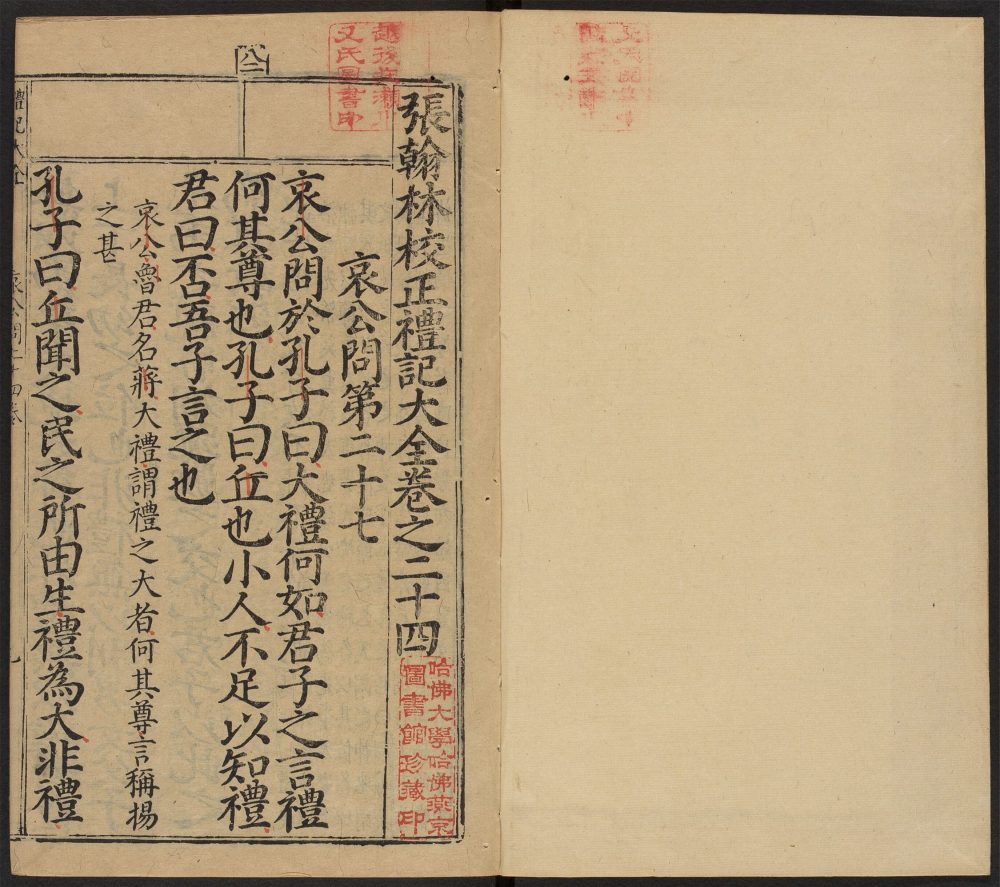 張翰林校正禮記大全卷之二十四
哈佛大學哈佛燕京
圖書館珍藏印
哀公問第二十七
哀公問於孔子曰大禮何如君子之言禮
何其尊也孔子曰丘也小人不足以知禮
君曰否吾子言之也
哀公魯君名蔣大禮謂禮之大者何其尊言稱揚
之甚
孔子曰丘聞之民之所由生禮為大非禮
禮記大全
哀公問二十四卷
氏圖書印